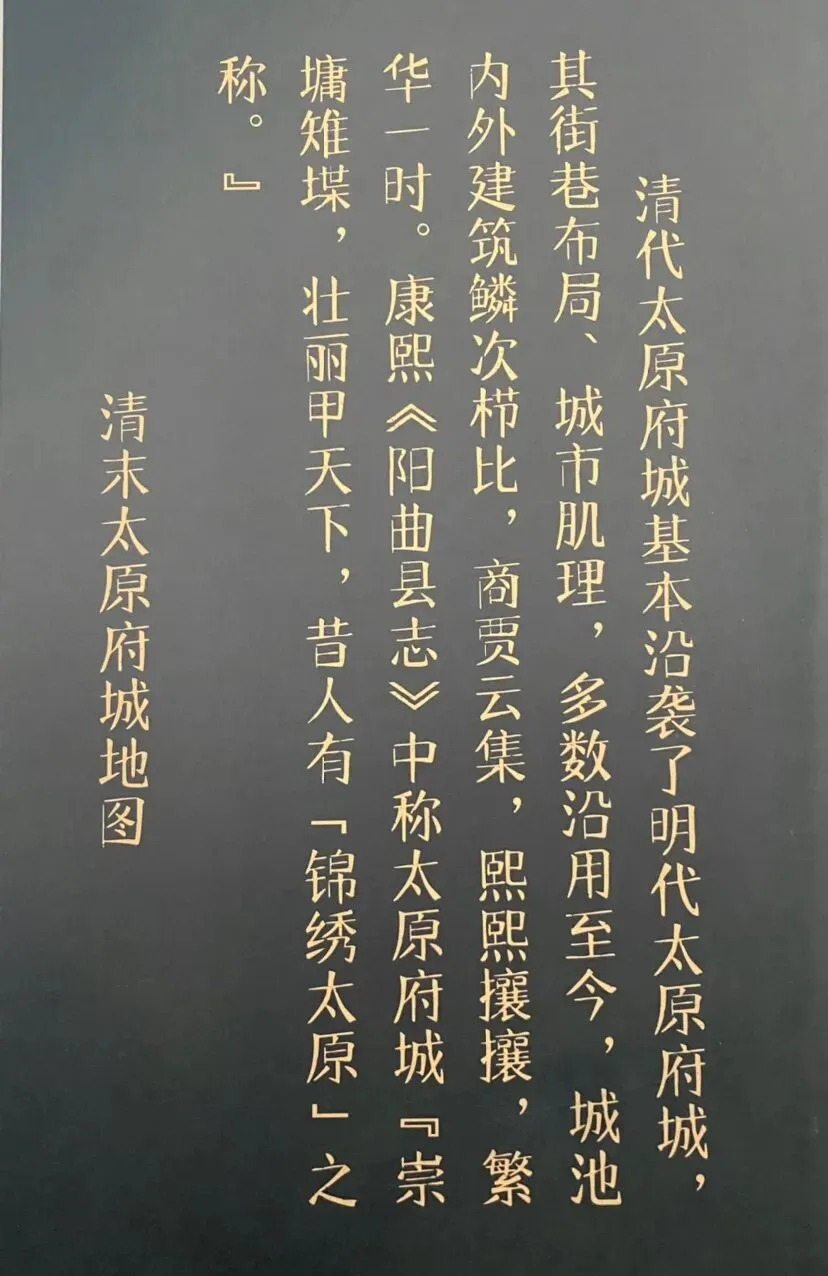 清代太原府城基本沿袭了明代太原府城，
其街巷布局、城市肌理，多数沿用至今，城池
内外建筑鳞次栉比，商贾云集，熙熙攘攘，繁
华一时。康熙《阳曲县志》中称太原府城『崇
墉雉堞，壮丽甲天下，昔人有「锦绣太原」之
称。』
清末太原府城地图